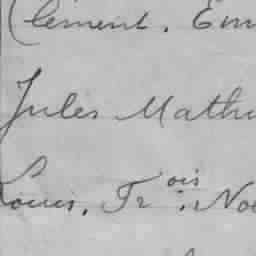 Clément. Em
Jules Mathu
Louis, Frois. No